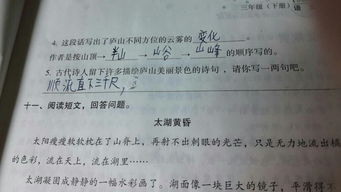 三年级（下册） 语
4. 这段话写出了庐山不同方位的云雾的 变化 。
作者是按山顶→ 半山 → 山谷 → 山峰 的顺序写的。
5. 古代诗人留下许多描绘庐山美丽景色的诗句，请你写一两句吧。
顺流直下三千尺，
十一、阅读短文，回答问题。
太湖黄昏
太阳瘦瘦软软枕在了山脊上，再射不出刺眼的光芒，只是无力地流出橘
的色彩，流在天上，流在湖里……
太湖凝固成静静的一幅水彩画了。湖面像一块巨大的镜子，平滑得不